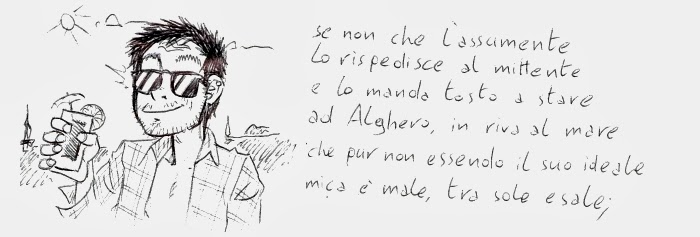 se non che l'assumente
lo rispedisce al mittente
e lo manda tosto a stare
ad Alghero, in riva al mare
che pur non essendo il suo ideale
mica è male, tra sole e sale;